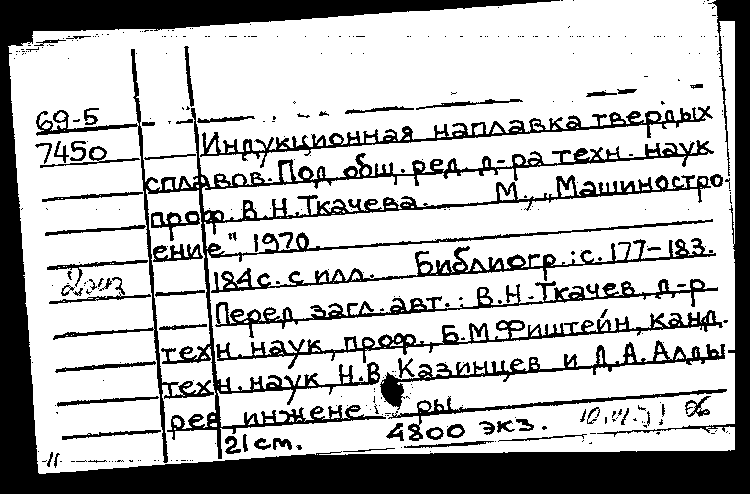 69-5
7450
Индукционная наплавка твердых
сплавов. Под общ. ред. д-ра техн. наук
проф. В.Н.Ткачева. М., „Машиностро-
ение", 1970.
184с. с илл. Библиогр.: с. 177-183.
2 экз
Перед загл. авт.: В.Н.Ткачев, д-р
техн. наук, проф., Б.М.Фиштейн, канд.
техн. наук, Н.В. Казинцев и Д.А.Алды-
рев, инжене ры.
21 cm. 4800 экз.